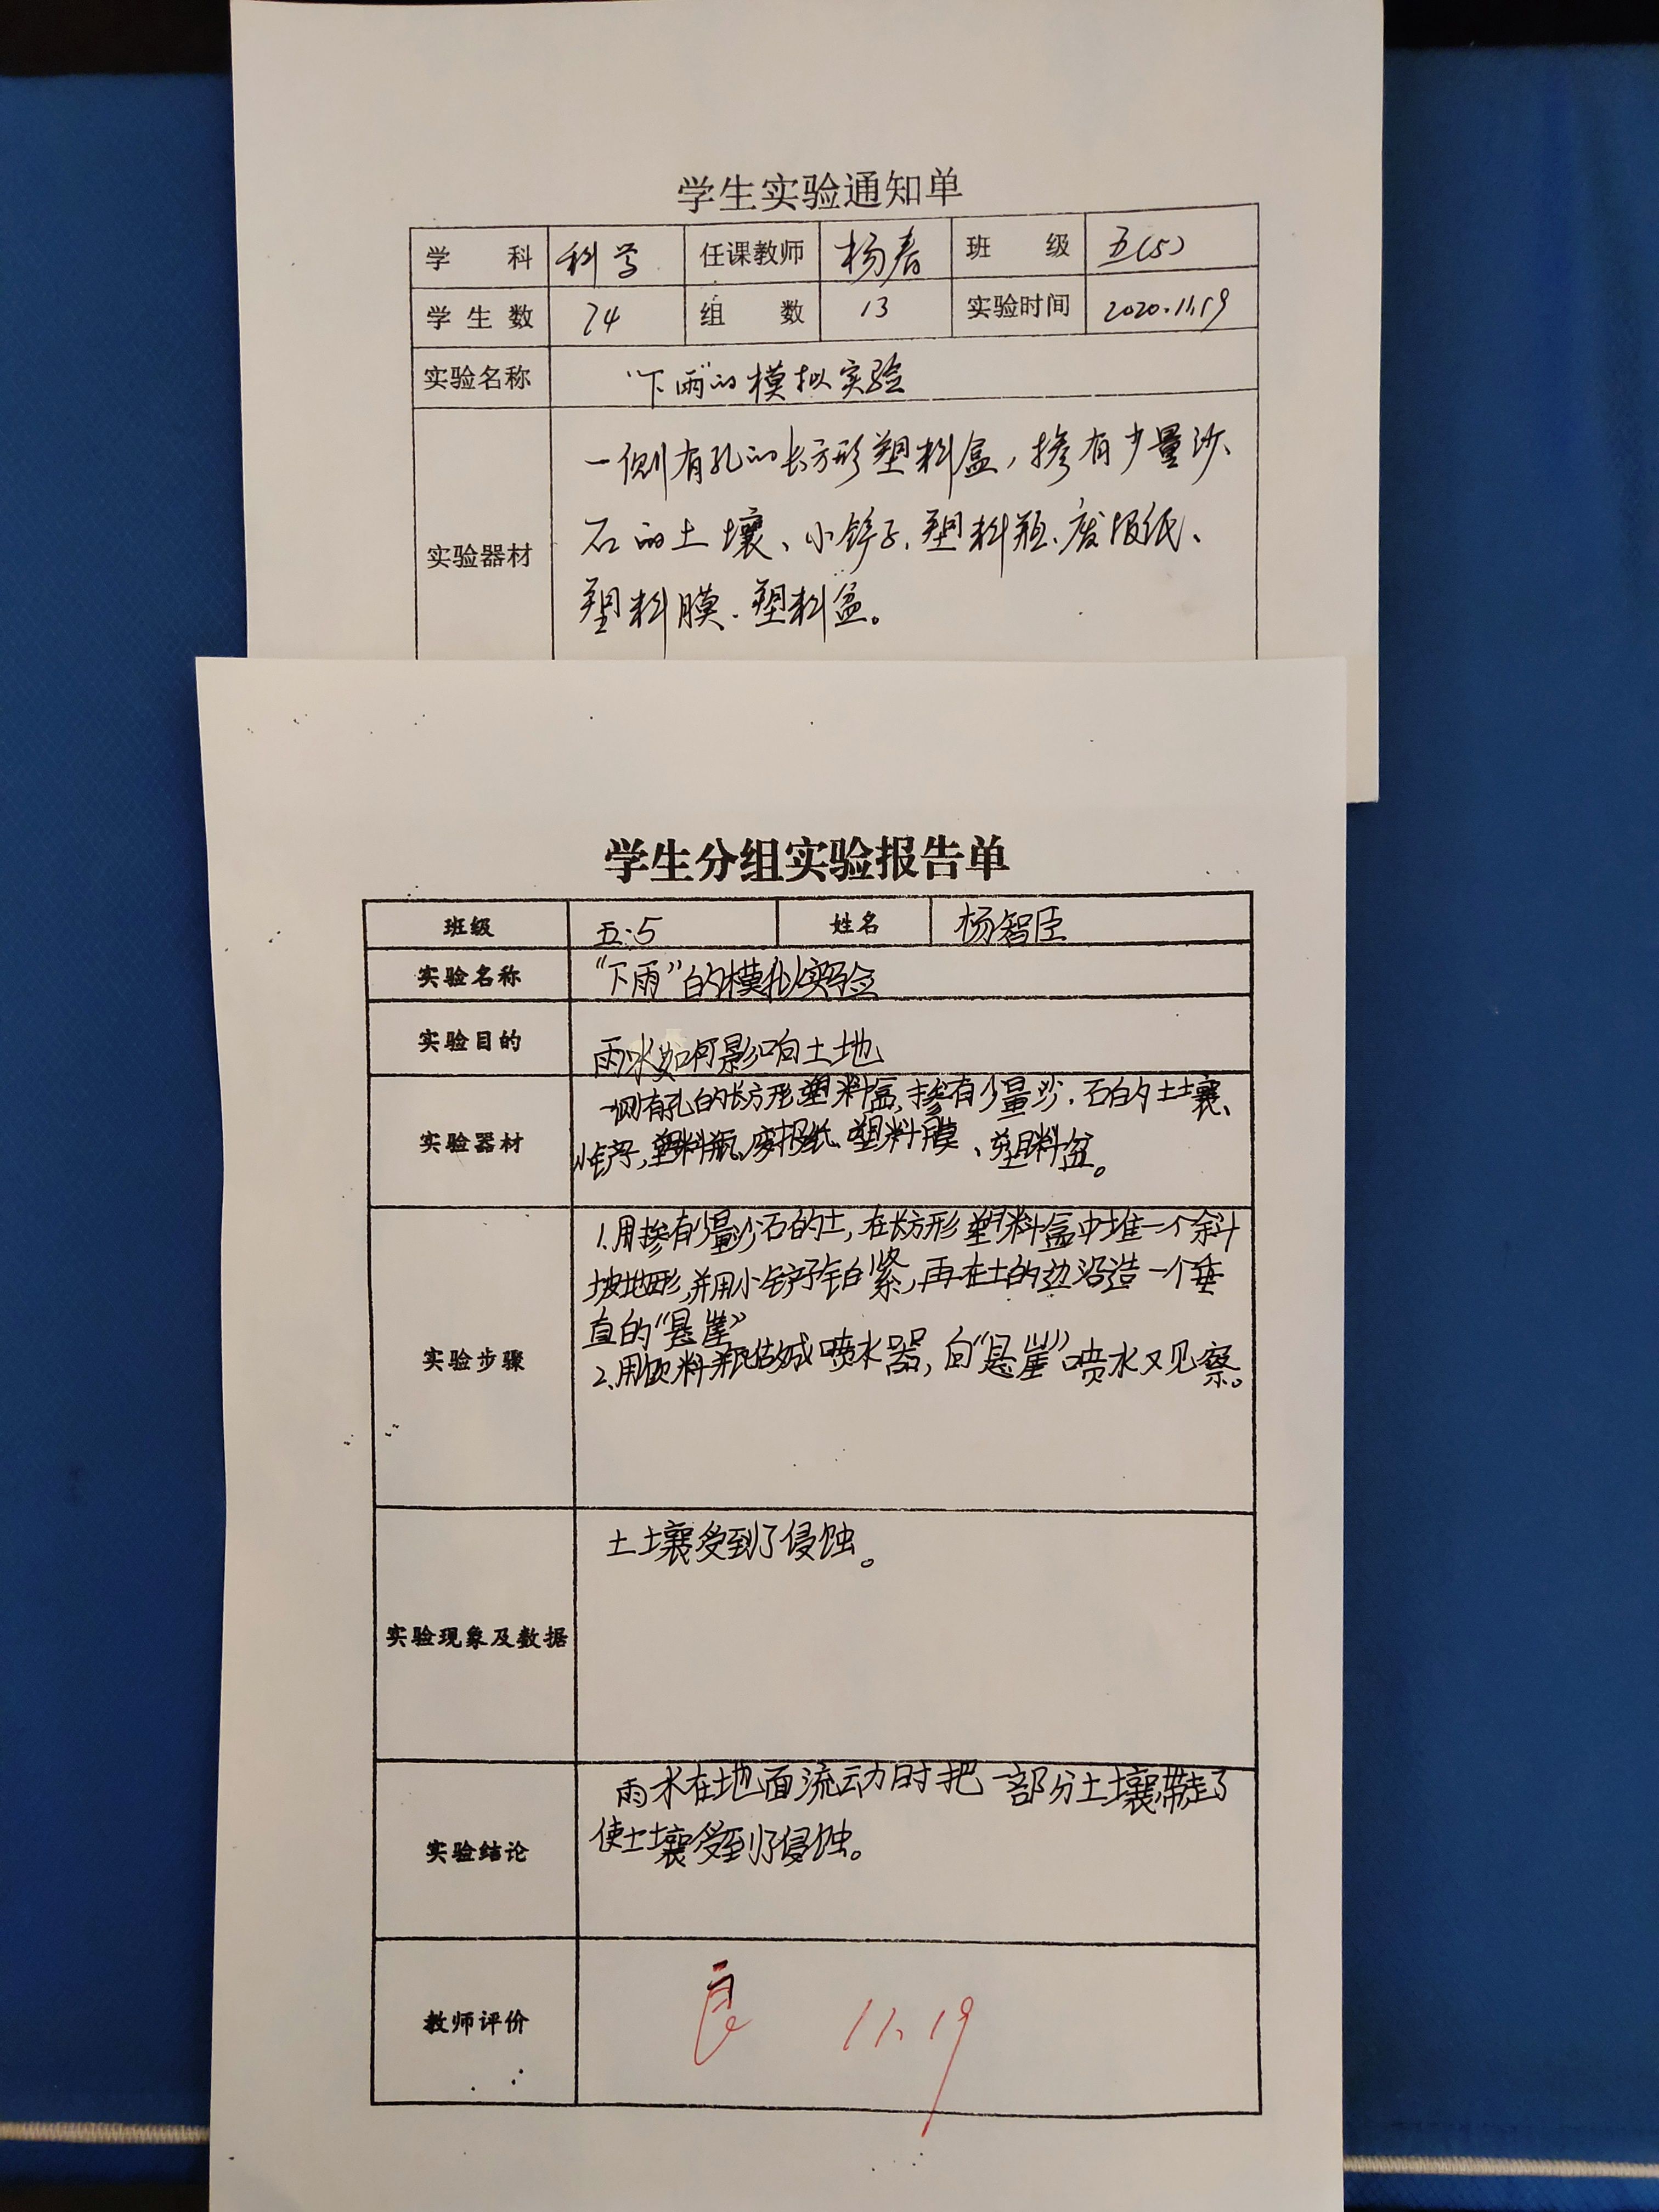 学生实验通知单
学 科 科学 任课教师 杨春 班 级 五(5)
学生数 74 组 数 13 实验时间 2020.11.19
实验名称 “下雨”的模拟实验
一侧有孔的长方形塑料盒,掺有少量沙、
实验器材 石的土壤、小铲子、塑料瓶、废报纸、
塑料膜、塑料盆。
学生分组实验报告单
班级 五.5 姓名 杨智臣
实验名称 “下雨”的模拟实验
实验目的 雨水如何影响土地
一侧有孔的长方形塑料盒,掺有少量沙、石的土壤、
实验器材 小铲子,塑料瓶、废报纸、塑料膜、塑料盆。
1.用掺有少量沙石的土,在长方形塑料盒中堆一个斜
坡地形,并用小铲子铂紧,再在土的边沿造一个垂
直的“悬崖”
实验步骤 2.用饮料瓶做成喷水器,向“悬崖”喷水观察。
土壤受到了侵蚀。
实验现象及数据
雨水在地面流动时把一部分土壤带走了
实验结论 使土壤受到了侵蚀。
教师评价 良 11.19